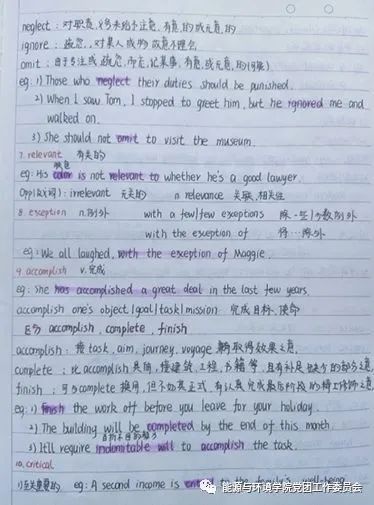 neglect : 对职责,义务未给予注意,有意的或无意的
ignore : 疏忽,对某人或物故意不理会
omit : 由于专注或疏忽,而忘记某事,有意,或无意的
eg: 1) Those who neglect their duties should be punished.
2) When I saw Tom, I stopped to greet him, but he ignored me and
walked on.
3) She should not omit to visit the museum.
7. relevant 有关的
eg: His color is not relevant to whether he's a good lawyer.
Opp(反义词): irrelevant 无关的 n relevance 关联,相关性
8. exception n.例外 with a few/few exceptions 除一些/少数例外
with the exception of 除…除外
eg: We all laughed, with the exception of Maggie.
9. accomplish v.完成
eg: She has accomplished a great deal in the last few years.
accomplish one's object/goal/task/mission 完成目标,使命
accomplish, complete, finish
accomplish : 接task, aim, journey, voyage 取得效果之意
complete : 比accomplish具体,指建筑,工程,书籍等,且有补足缺少的部分之意
finish : 可与complete换用,但不如其正式,有认真完成最后阶段的精工修饰之意
eg: 1) finish the work off before you leave for your holiday.
2) The building will be completed by the end of this month.
3) It'll require indomitable will to accomplish the task.
10. critical
1)至关重要的 eg: A second income is critical to the family's well-being
能源与环境学院党团工作委员会